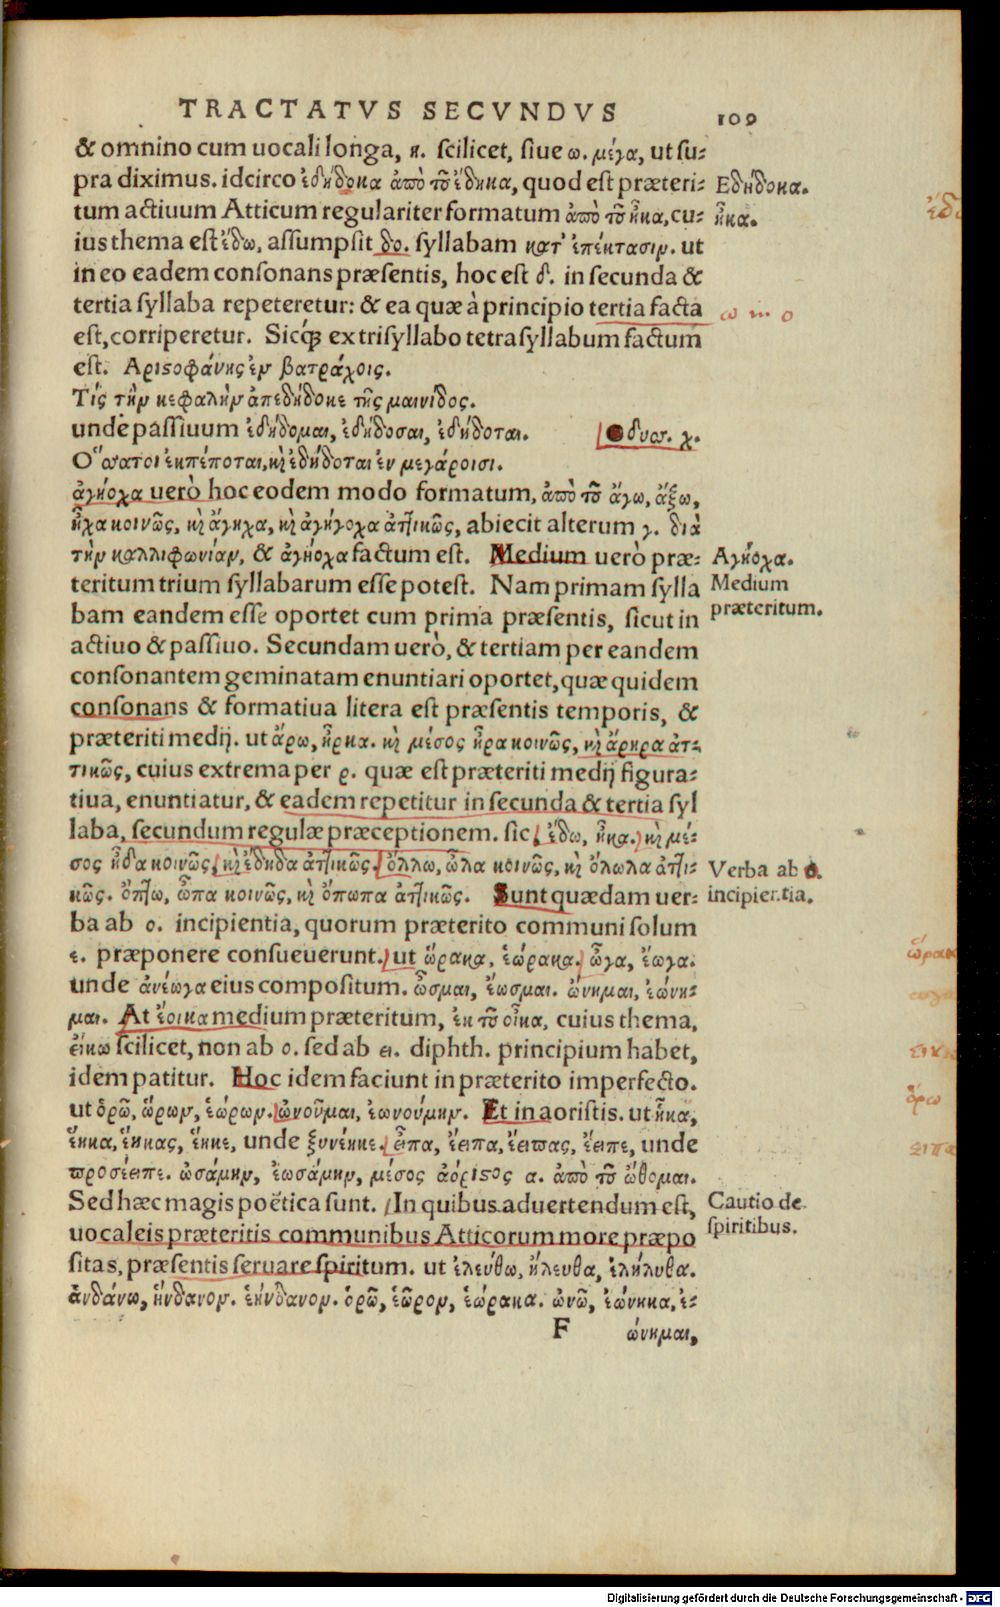 TRACTATVS SECVNDVS 109
& omnino cum uocali longa, η. scilicet, siue ω. μέγα, ut su-
pra diximus. idcirco ἐδήδοκα ἀπὸ τοῦ ἔδηκα, quod est præteri-
tum actiuum Atticum regulariter formatum ἀπὸ τοῦ ἦκα, cu-
ius thema est ἔδω, assumpsit δο. syllabam κατ' ἐπέκτασιν. ut
in eo eadem consonans præsentis, hoc est δ. in secunda &
tertia syllaba repeteretur: & ea quæ à principio tertia facta
est, corriperetur. Sicq́ꝫ ex trisyllabo tetrasyllabum factum
est. Αριστοφάνης ἐν βατράχοις.
Τίς τὴν κεφαλὴν ἀπεδήδοκε τῆς μαινίδος.
unde passiuum ἐδήδομαι, ἐδήδοσαι, ἐδήδοται.
Ὅσσα τοι ἐκπέποται, καὶ ἐδήδοται ἐν μεγάροισι.
ἀγήοχα uerò hoc eodem modo formatum, ἀπὸ τοῦ ἄγω, ἄξω,
ἦχα κοινῶς, καὶ ἄγηχα, καὶ ἀγήγοχα ἀττικῶς, abiecit alterum γ. διὰ
τὴν καλλιφωνίαν, & ἀγήοχα factum est. Medium uerò præ-
teritum trium syllabarum esse potest. Nam primam sylla
bam eandem esse oportet cum prima præsentis, sicut in
actiuo & passiuo. Secundam uerò, & tertiam per eandem
consonantem geminatam enuntiari oportet, quæ quidem
consonans & formatiua litera est præsentis temporis, &
præteriti medij. ut ἄρω, ἦρκα. καὶ μέσος ἦρα κοινῶς, καὶ ἄρηρα ἀτ-
τικῶς, cuius extrema per ρ. quæ est præteriti medij figura-
tiua, enuntiatur, & eadem repetitur in secunda & tertia syl
laba, secundum regulæ præceptionem. sic, ἔδω, ἦκα. καὶ μέ-
σος ἦδα κοινῶς, καὶ ἔδηδα ἀττικῶς. ὄλλω, ὦλα κοινῶς, καὶ ὄλωλα ἀττι-
κῶς. ὄπτω, ὦπα κοινῶς, καὶ ὄπωπα ἀττικῶς. Sunt quædam uer-
ba ab ο. incipientia, quorum præterito communi solum
ε. præponere consueuerunt. ut ὥρακα, ἑώρακα. ὦγα, ἔωγα.
unde ἀνέωγα eius compositum. ὦσμαι, ἔωσμαι. ὤνημαι, ἐώνη-
μαι. At ἔοικα medium præteritum, ἐκ τοῦ οἶκα, cuius thema,
εἴκω scilicet, non ab ο. sed ab ει. diphth. principium habet,
idem patitur. Hoc idem faciunt in præterito imperfecto.
ut ὁρῶ, ὥρων, ἑώρων. ὠνοῦμαι, ἐωνούμην. Et in aoristis. ut ἧκα,
ἕηκα, ἕηκας, ἕηκε, unde ξυνέηκε. εἶπα, ἔειπα, ἔειπας, ἔειπε, unde
προσέειπε. ὠσάμην, ἐωσάμην, μέσος ἀόριστος α. ἀπὸ τοῦ ὤθομαι.
Sed hæc magis poëtica sunt. In quibus aduertendum est,
uocaleis præteritis communibus Atticorum more præpo
sitas, præsentis seruare spiritum. ut ἐλεύθω, ἤλευθα, ἐλήλυθα.
ἁνδάνω, ἥνδανον. ἑήνδανον. ὁρῶ, ἑῶρον, ἑώρακα. ὠνῶ, ἐώνηκα, ἐ-
F ώνημαι,
Εδήδοκα.
ἦκα.
ω in ο
Αγήοχα.
Medium
præteritum.
Verba ab ο.
incipientia.
Cautio de
spiritibus.
Digitalisierung gefördert durch die Deutsche Forschungsgemeinschaft - DFG